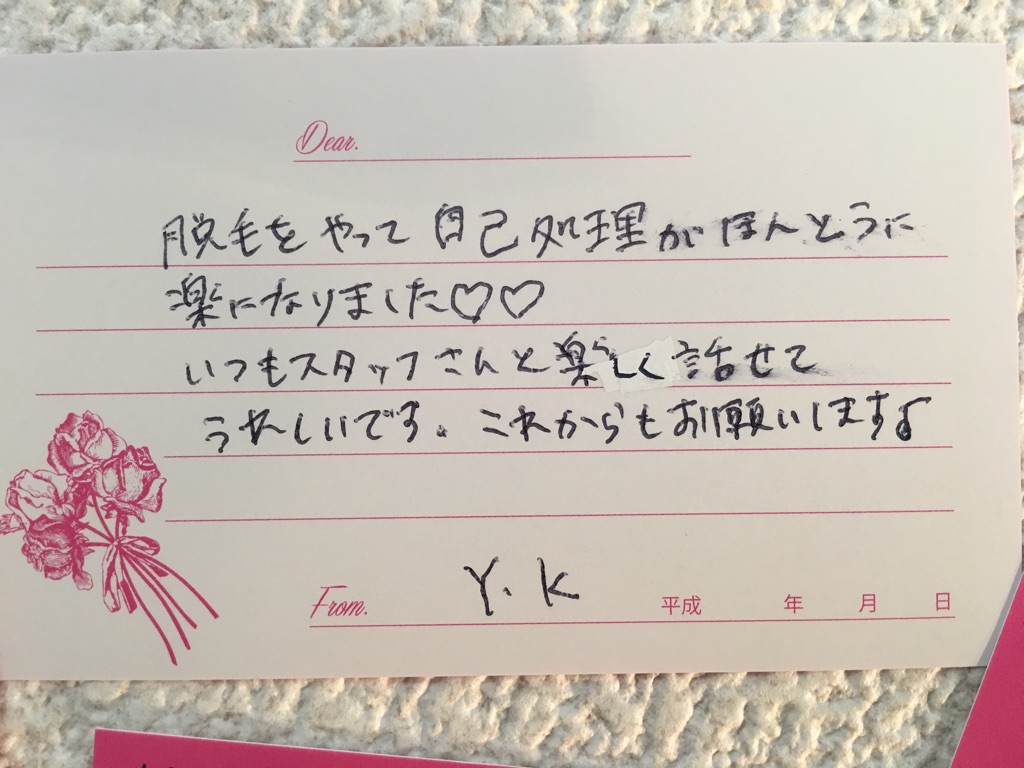 Dear.
脱毛をやって自己処理がほんとうに
楽になりました♡♡
いつもスタッフさんと楽しく話せて
うれしいです。これからもお願いします♪
From. Y. K 平成 年 月 日